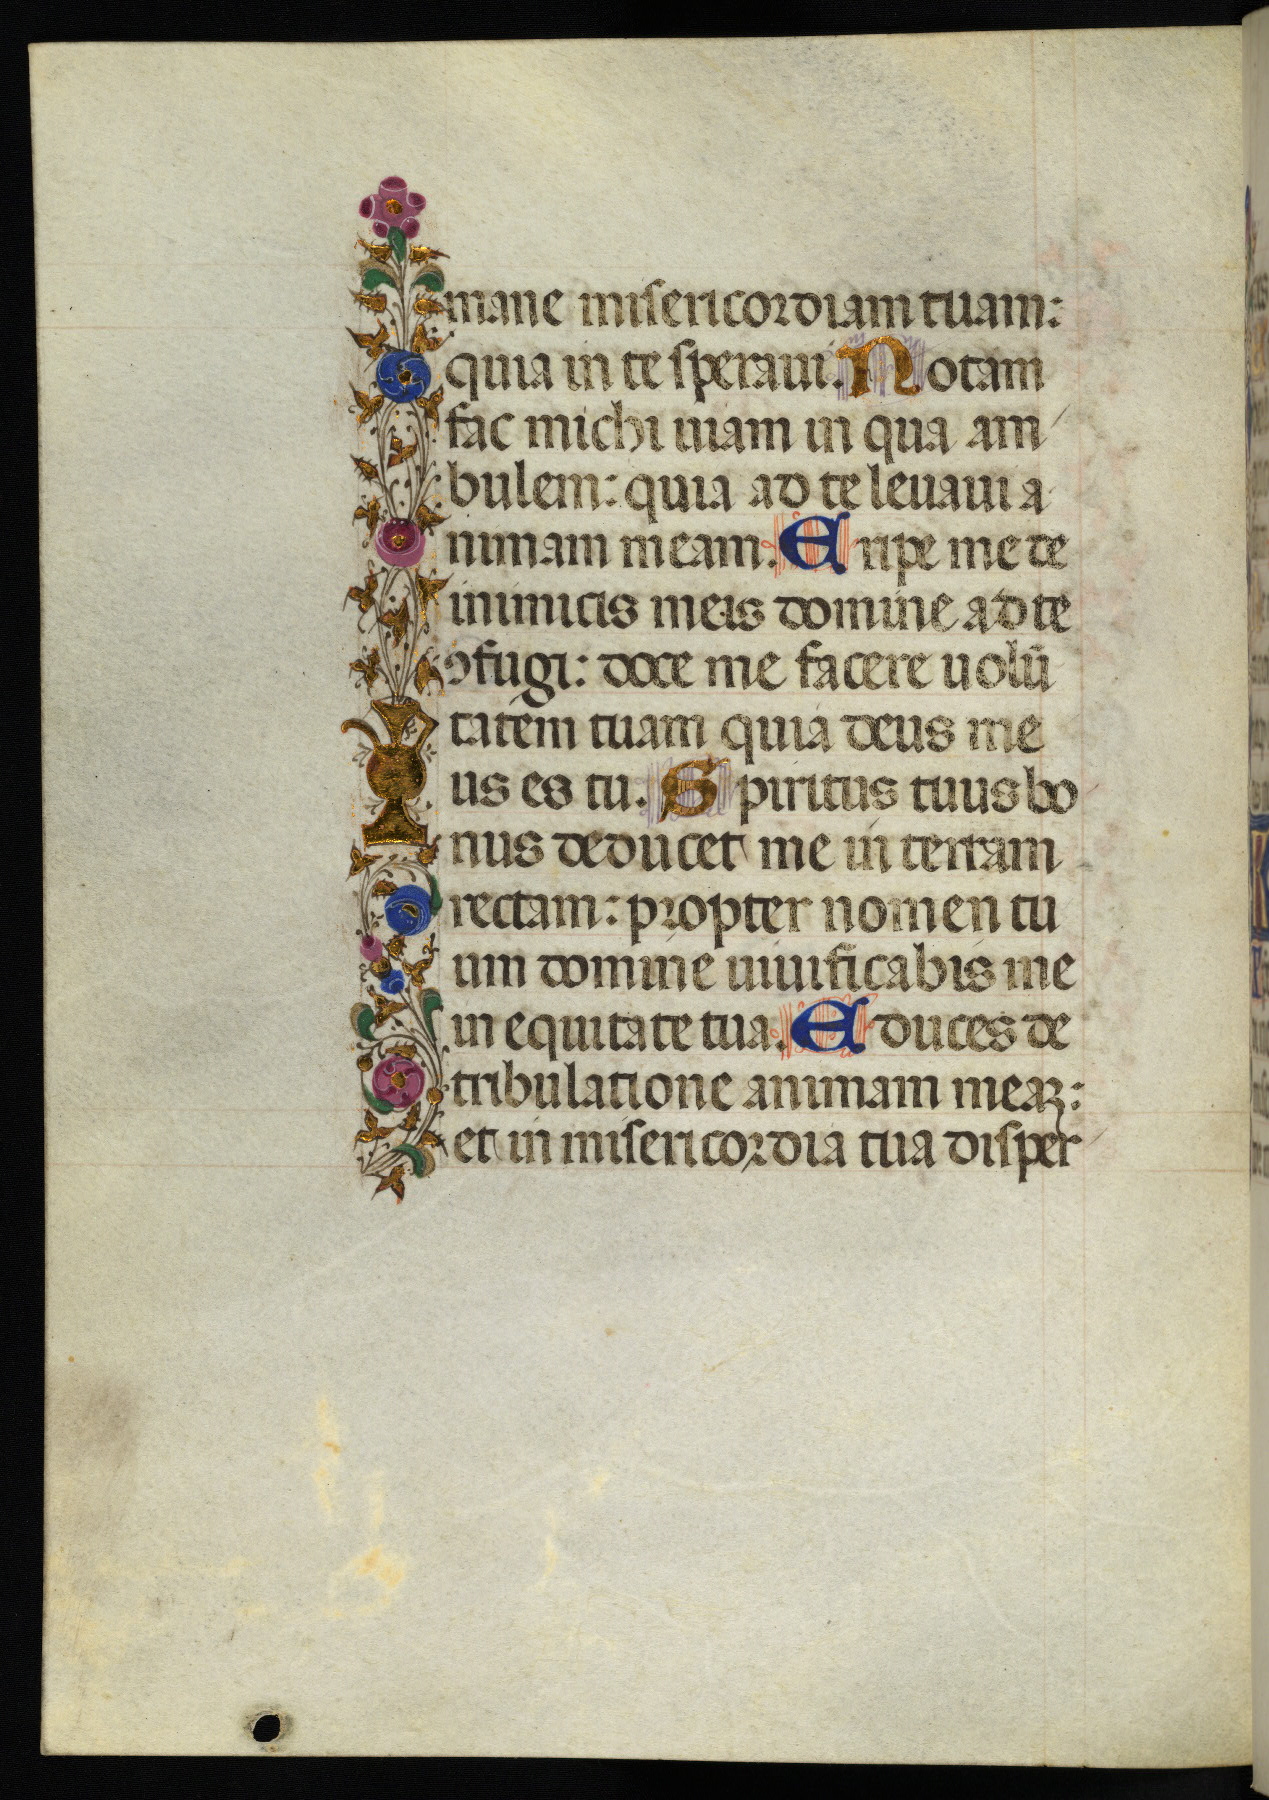 mane misericordiam tuam:
quia in te speraui. Notam
fac michi uiam in qua am
bulem: quia ad te leuaui a
nimam meam. Eripe me de
inimicis meis domine ad te
ꝯfugi: doce me facere uolū
tatem tuam quia deus me
us es tu. Spiritus tuus bo
nus deducet me in terram
rectam: propter nomen tu
um domine uiuificabis me
in equitate tua. Educes de
tribulatione animam meaꝫ:
et in misericordia tua disper